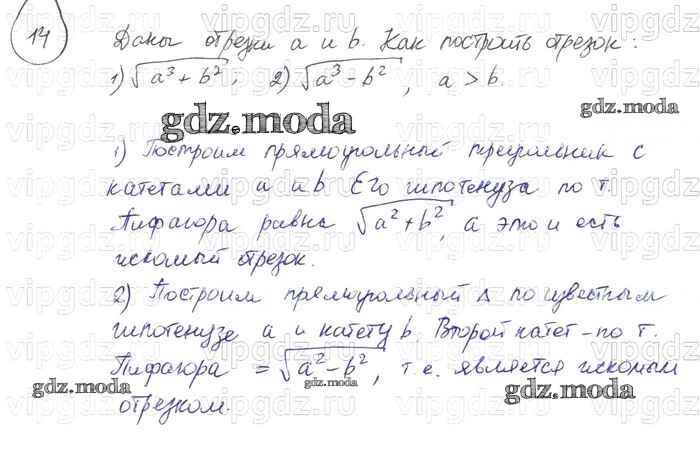 14
Даны отрезки a и b. Как построить отрезок:
1) √a³ + b²; 2) √a³ - b², a > b.
gdz.moda
gdz.moda
1) Построим прямоугольный треугольник с
катетами a и b Его гипотенуза по т.
Пифагора равна √a² + b², а это и есть
искомый отрезок.
2) Построим прямоугольный Δ по известным
гипотенузе a и катету b. Второй катет - по т.
Пифагора = √a² - b², т.е. является искомым
gdz.moda gdz.moda gdz.moda
отрезком.